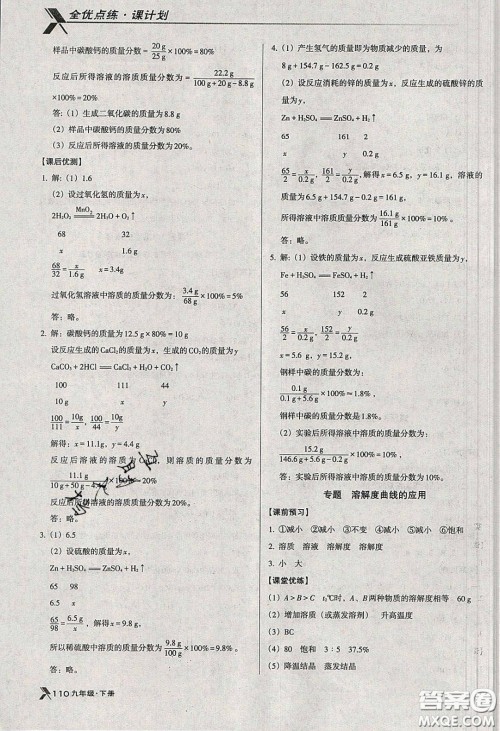 全优点练·课计划
样品中碳酸钙的质量分数= 20 g/25 g ×100%=80%
反应后所得溶液的溶质质量分数= 22.2 g/(100 g+20 g-8.8 g)
×100%=20%
答:(1)生成二氧化碳的质量为8.8 g
(2)样品中碳酸钙的质量分数为80%
(3)反应后所得溶液的质量分数为20%。
【课后优测】
1. 解:(1)1.6
(2)设过氧化氢的质量为x,
2H₂O₂ =MnO₂= 2H₂O+O₂↑
68 32
x 1.6 g
68/32 = x/1.6 g x=3.4g
过氧化氢溶液中溶质的质量分数为: 3.4 g/68 g ×100%=5%
答:略。
2. 解:碳酸钙的质量为12.5 g×80%=10 g
设反应生成的CaCl₂的质量为x,生成的CO₂的质量为y
CaCO₃+2HCl=CaCl₂+H₂O+CO₂↑
100 111 44
10 g x y
100/111 = 10g/x , 100/44 = 10 g/y
解得:x=11.1g,y=4.4 g
反应后溶液的溶质为CaCl₂,则溶质的质量分数为
11.1 g/(10 g+50 g-4.4 g) ×100%=20%
反应后所得溶液溶质质量分数为20%。
答:略。
3. (1)6.5
(2)设硫酸溶质的质量为x,
Zn+H₂SO₄=ZnSO₄+H₂↑
65 98
6.5 g x
65/98 = 6.5 g/x ,解得x=9.8 g,
所以稀硫酸中溶质的质量分数为 9.8 g/100 g ×100%=9.8%
答:略。
110 九年级·下册
4. (1)产生氢气的质量即为物质减少的质量,为
8 g+154.7 g-162.5 g=0.2 g
(2)设反应消耗的锌的质量为x,反应生成的硫酸锌的质
量为y,
Zn+H₂SO₄=ZnSO₄+H₂↑
65 161 2
x y 0.2 g
65/2 = x/0.2 g , 161/2 = y/0.2 g ,解得x=6.5 g,y=16.1 g,
所得溶液的质量=6.5 g+154.7 g-0.2 g=161 g,
所得溶液中溶质质量分数= 16.1 g/161 g ×100%=10%。
答:略。
5. 解:(1)设铁的质量为x,反应生成硫酸亚铁质量为y,
Fe+H₂SO₄=FeSO₄+H₂↑
56 152 2
x y 0.2 g
56/2 = 152/2 = x/0.2 g = y/0.2 g
x=5.6 g,y=15.2 g,
钢样中碳的质量分数是:
0.1 g/(0.1 g+5.6 g) ×100%≈1.8%,
钢样中碳的质量分数是1.8%。
(2)实验后所得溶液的溶质质量分数为:
15.2 g/(146.6 g+5.6 g-0.2 g) ×100%=10%。
答:实验后所得溶液的溶质质量分数为10%。
专题 溶解度曲线的应用
【课前预习】
1. ①减小 ②减小 ③不变 ④减小 ⑤减小 ⑥饱和
2. 溶质 溶液 溶解度 溶解度
3. 小 大
【课堂优练】
(1)A>B>C t₂℃时,A、B两种物质的溶解度相等 60 g
(2)增加溶质(或蒸发溶剂) 升高温度
(3)BC
(4)80 饱和 3:5 37.5%
(5)降温结晶 蒸发结晶
答案圈
MXQE.COM